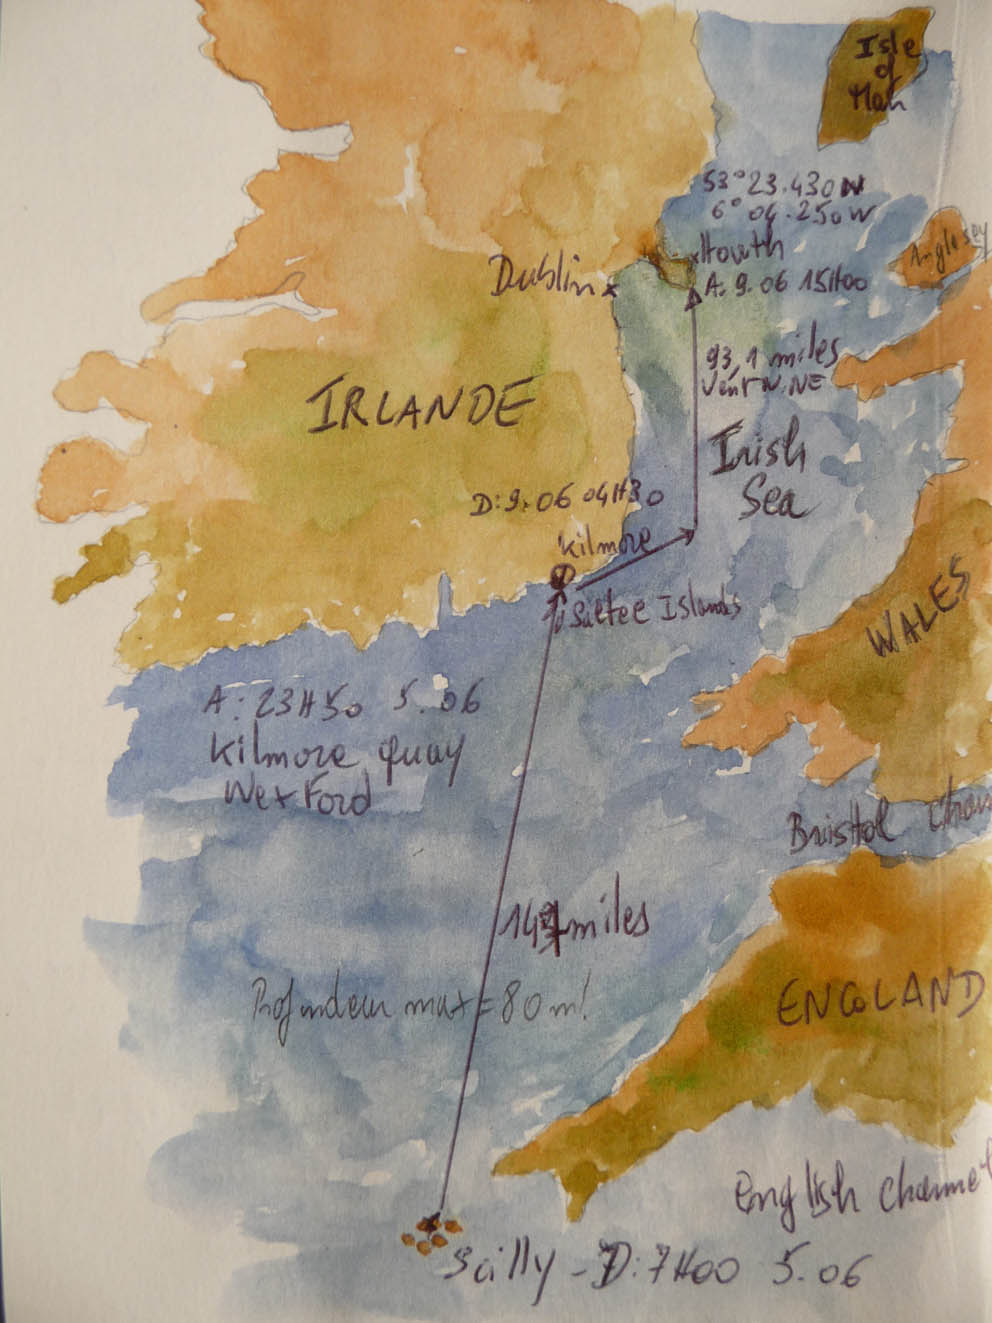 Isle
of
Man
53°23.430N
6°04.250W
Howth
Anglesey
Dublin x
A. 9.06 15H00
93,1 miles
Vent N.NE
IRLANDE
Irish
Sea
D: 9.06 04H30
Kilmore
Saltee Islands
WALES
A: 23H50 5.06
Kilmore quay
Wexford
Bristol Chan
miles
Profondeur max = 80 m!
ENGLAND
English Channel
Scilly - D: 7H00 5.06